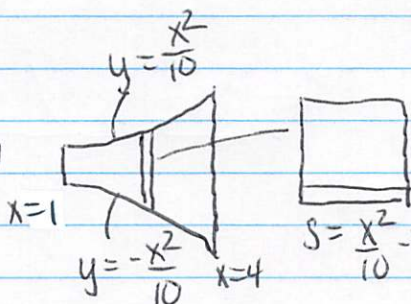 y = x²/10
x=1
y = -x²/10
x=4
S = x²/10 -